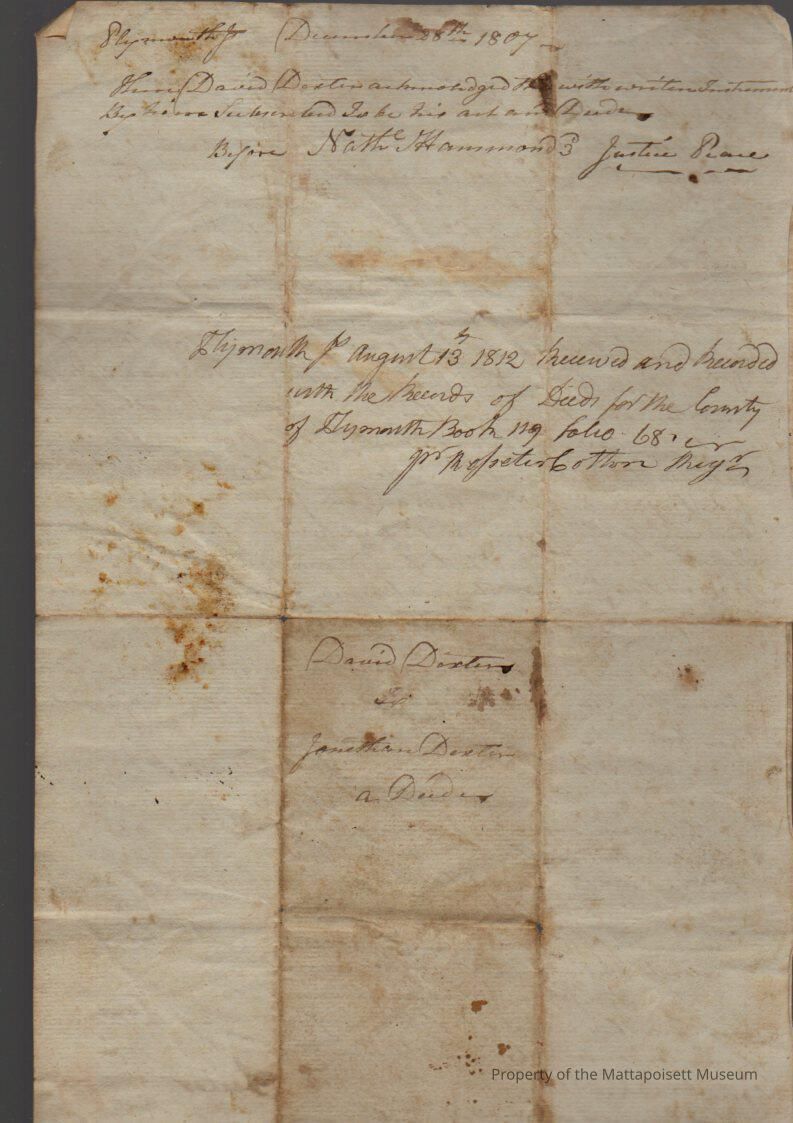 Plymouth Ss December 28th 1807
Then David Dexter acknowledged the within written Instrument
By him Subscribed To be his act and Deed
Before Nathl Hammond 3d Justice Peace
Plymouth Ss August 13th 1812 Received and Recorded
with the Records of Deeds for the County
of Plymouth Book 119 folio 68
pr Rosseter Cotton Regr
David Dexter
To
Jonathan Dexter
a Deed
Property of the Mattapoisett Museum